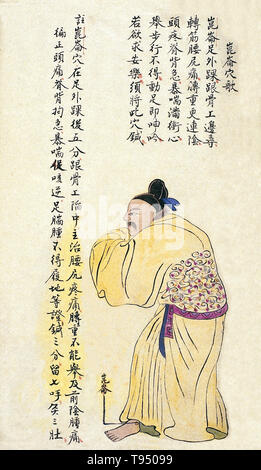 崑崙穴歌
崑崙足外踝跟骨上邊尋
轉筋腰尻痛膊重更連陰
頭疼脊背急暴喘滿衝心
舉步行不得動足即呻吟
若欲求安樂須將此穴鍼
註崑崙穴在足外踝後五分跟骨上陷中主治腰尻疼痛膊重不能舉及前陰腫痛
偏正頭痛脊背拘急暴喘咳逆足腨腫不得履地等證鍼三分留七呼灸三壯
崑崙
alamy - T95099